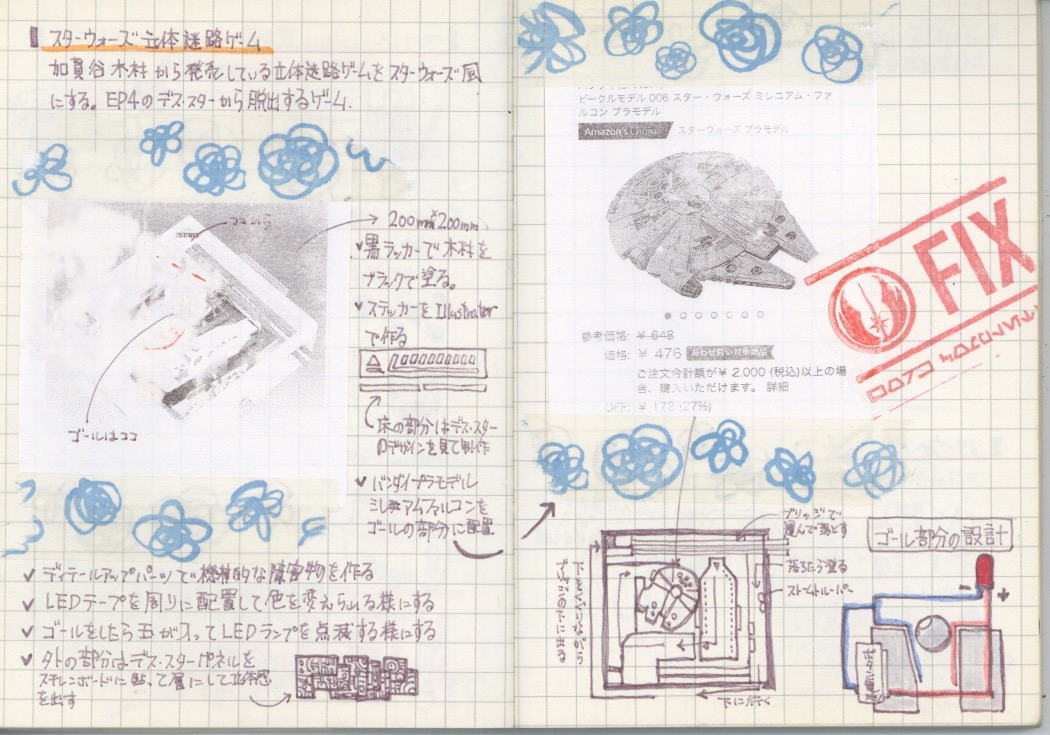 スターウォーズ立体迷路ゲーム
加賀谷木材から発売している立体迷路ゲームをスターウォーズ風
にする。EP4のデス・スターから脱出するゲーム.
START
ゴールはココ
200mm×200mm
✓黒ラッカーで木材を
ブラックで塗る。
✓ステッカーをIllustrator
で作る
床の部分はデス・スター
のデザインを見て制作
✓バンダイプラモデル
ミレニアムファルコンを
ゴールの部分に配置
✓ディテールアップパーツで機械的な障害物を作る
✓LEDテープを周りに配置して色を変えられる様にする
✓ゴールをしたら玉が入ってLEDランプを点滅する様にする
✓外の部分はデス・スターパネルを
スチレンボードに貼って層にして立体感
を出す
ビークルモデル 006 スター・ウォーズ ミレニアム・ファ
ルコン プラモデル
Amazon's Choice スターウォーズ プラモデル
参考価格: ¥ 648
価格: ¥ 476 あわせ買い対象商品
ご注文合計額が¥ 2,000 (税込)以上の場
合、購入いただけます。 詳細
OFF: ¥ 172 (27%)
FIX
ブリッジで
運んで落とす
落ちたら登る
ストームトルーパー
下をくぐりながら
ブリッジの下に出る
下に行く
ゴール部分の設計
- +
ボタン電池